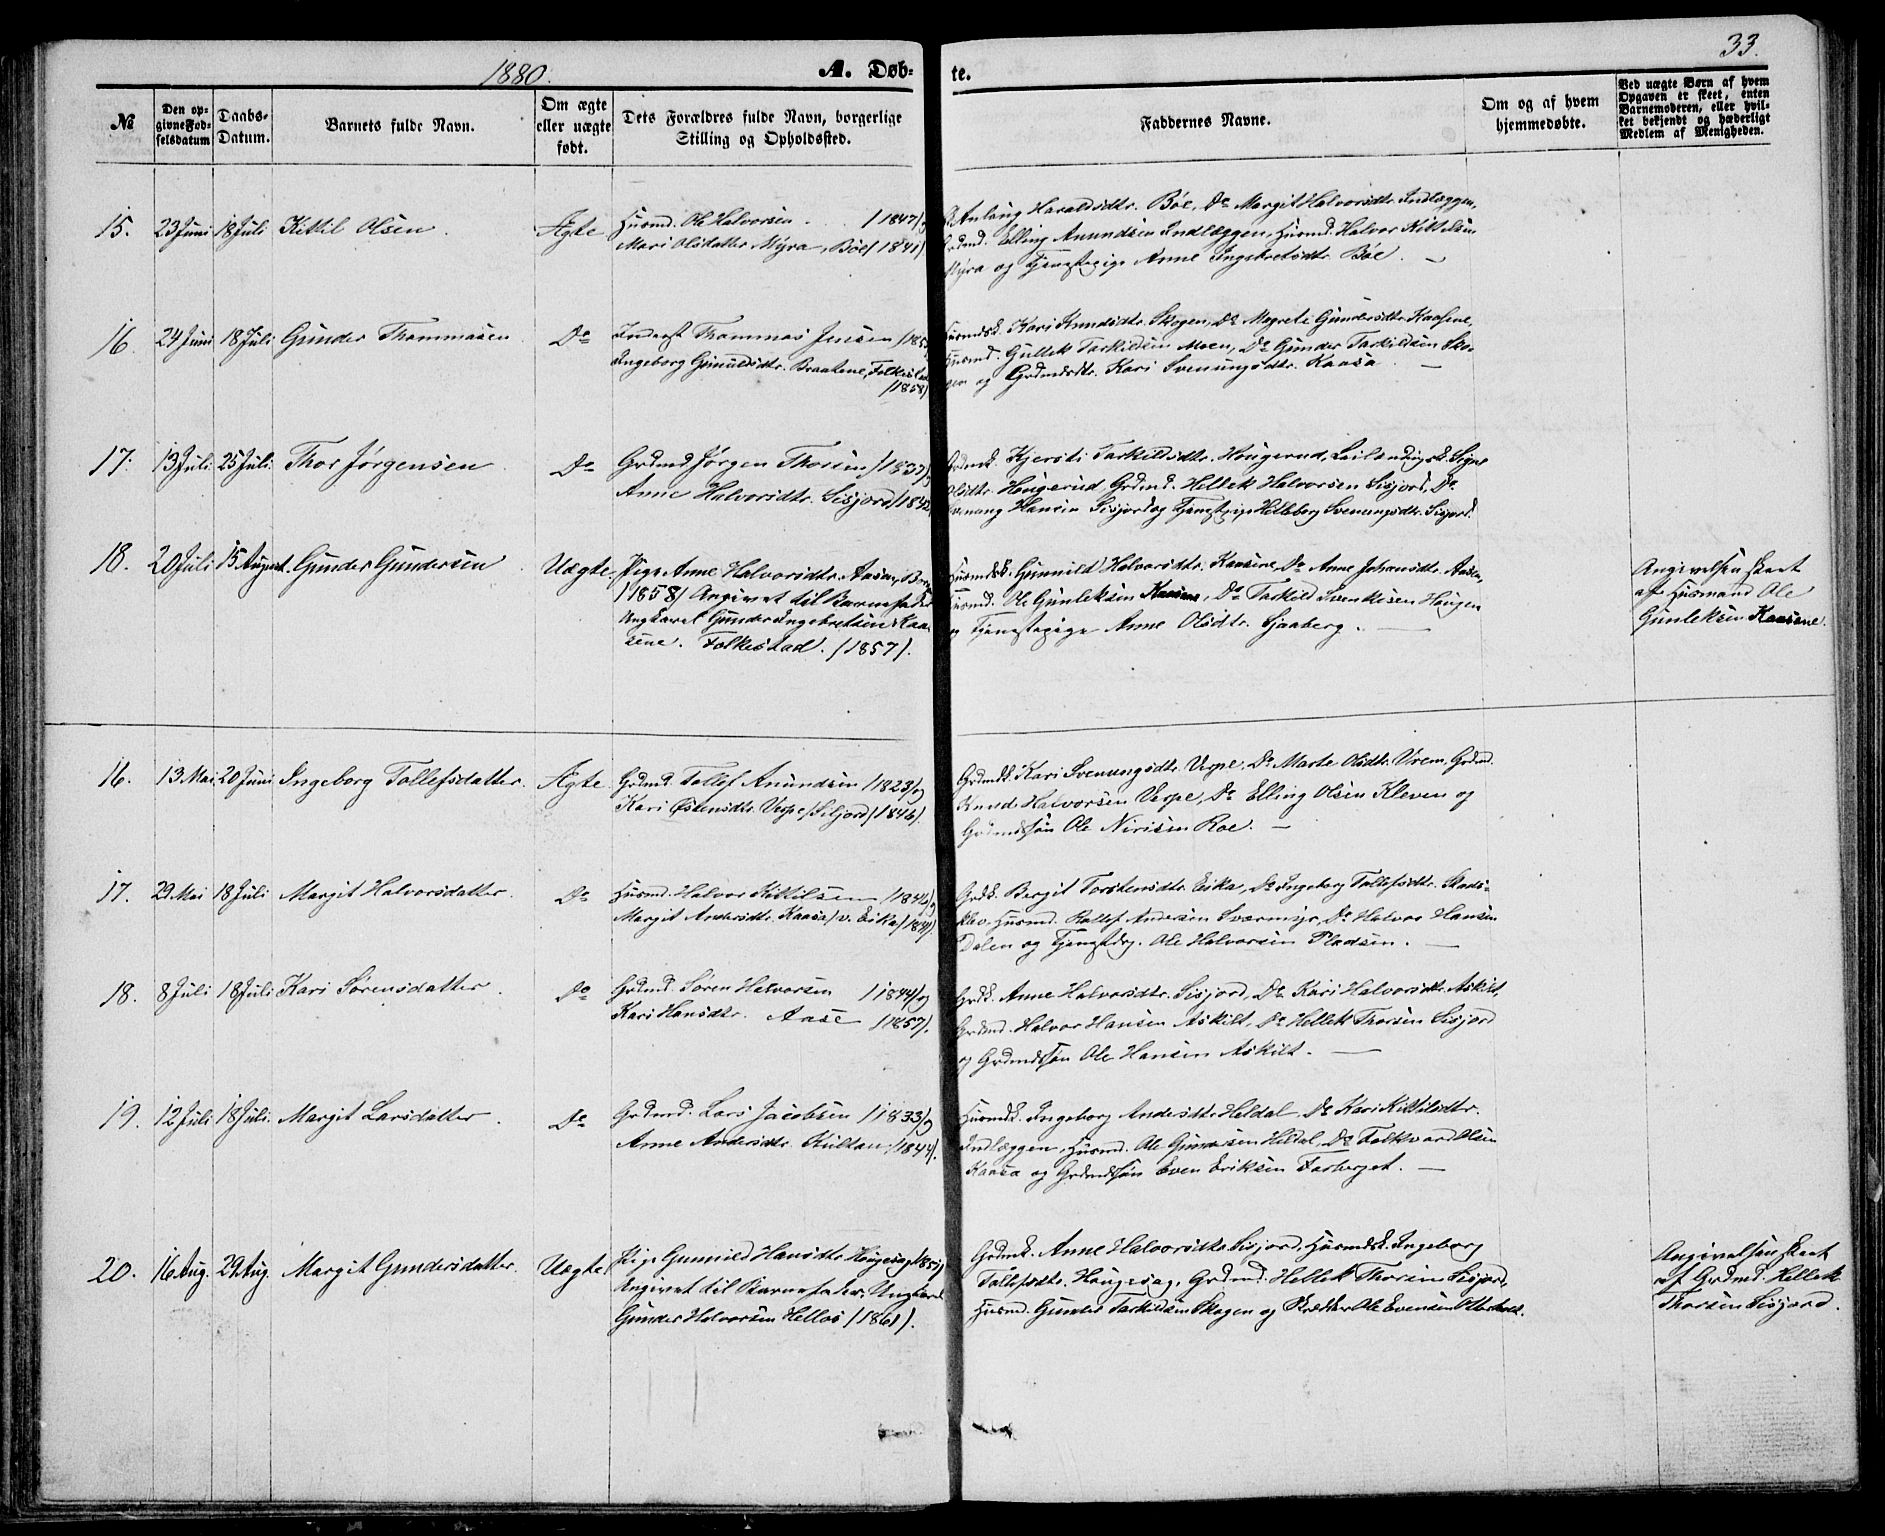 1880. A. Døb- te. 33.
№
Den opgivne Fødselsdatum
Daabs-Datum.
Barnets fulde Navn.
Om ægte eller uægte født.
Dets Forældres fulde Navn, borgerlige Stilling og Opholdssted.
Faddernes Navne.
Om og af hvem hjemmedøbte.
Ved uægte Børn af hvem Opgaven er skeet, enten Barnemoderen, eller hvilket bekjendt og hæderligt Medlem af Menigheden.
15. 23 Juni 18 Juli Kittil Olsen. Ægte
Husmd. Ole Halvorsen /1847/ og
Mari Olsdatter Myra, Bøe /1841/
Anlaug Haraldsdtr. Bøe, Do Margit Halvorsdtr. Indlæggen,
Grdmd. Elling Anundsen Indlæggen, Husmd. Halvor Kittelsen
Myra og Tjenestepige Anne Ingebretsdtr. Bøe.
16. 24 Juni 18 Juli Gunder Thommasen Do
Inderst Thommas Jensen
Ingeborg Gunuldsdtr. Braatene, Folkestad
/1858/
Husmdsk. Kari Knudsdtr. Skogen, Do Megrete Gundersdtr. Kaasene,
Husmd. Gullek Tarkildsen Moen, Do Gunder Tarkildsen Sko-
gen og Grdmdsdtr. Kari Svenungsdtr. Kaasa.
17. 13 Juli 25 Juli. Thor Jørgensen. Do
Grdmd Jørgen Thorsen /1837/ og
Anne Halvorsdtr. Sisjord /1842/
Grdmdsk. Kjersti Tarkildsdtr. Hougerud, Leilændingsk. Signe
Olsdtr. Hougerud, Grdmd. Hellek Halvorsen Sisjord, Do
Svenung Hansen Sisjord og Tjenestepige Helleborg Svenungsdtr. Sisjord.
18. 20 Juli 15 August. Gunder Gundersen Uægte.
Pige Anne Halvorsdtr. Aasen,
/1858/ Angivet til Barnefader
Ungkarl Gunder Ingebretsen Kaa-
sene. Folkestad. /1857/.
Husmdsk. Gunnild Halvorsdtr. Kaasene, Do Anne Johansdtr. Aasen,
Husmd. Ole Gunleksen Kaasene, Do Tarkild Svenkesen Haugen
og Tjenestepige Anne Olsdtr. Sjaaberg.
Angivelsen skeet
af Husmand Ole
Gunleksen Kaasene.
16. 13 Mai 20 Juni Ingeborg Tollefsdatter. Ægte
Grdmd. Tollef Anundsen /1823/ og
Kari Østensdtr. Verpe /Siljord/ /1846/.
Grdmdsk. Kari Svenungsdtr. Verpe, Do Marte Olsdtr. Vrem, Grdmd.
Knud Halvorsen Verpe, Do Elling Olsen Kleven og
Grdmdssøn Ole Nirisen Roe.
17. 29 Mai 18 Juli Margit Halvorsdatter. Do
Husmd. Halvor Kittilsen og
Margit Andersdtr. Kaasa /v. Eika/
Grdk. Bergit Torstensdtr. Eika, Do Ingeborg Tollefsdtr. Stads-
klev, Husmd. Kollef Andersen Sværmyr, Do Halvor Hansen
Dalen og Tjenestedrg. Ole Halvorsen Pladsen.
18. 8 Juli 18 Juli Kari Sørensdatter Do
Grdmd. Søren Halvorsen /1844/ og
Kari Hansdtr. Aase /1857/.
Grdk. Anne Halvorsdtr. Sisjord, Do Kari Halvorsdtr. Askilt,
Grdmd. Halvor Hansen Askilt, Do Hellek Thorsen Sisjord
og Grdmdssøn Ole Hansen Askilt.
19. 12 Juli 18 Juli. Margit Larsdatter Do
Grdmd. Lars Jacobsen /1833/ og
Anne Andersdtr. Kultan /1844/.
Husmdsk. Ingeborg Andersdtr. Heldal, Do Kari Kittilsdtr.
Indlæggen, Husmd. Ole Gundersen Heldal, Do Folkvard Olsen
Kaasa og Grdmdssøn Even Eriksen Farberget.
20. 16 Aug. 29 Aug. Margit Gundersdatter. Uægte.
Pige Gunnild Hansdtr. Hougesag /1851/
Angivet til Barnefader: Ungkarl
Gunder Halvorsen Hellos /1861/.
Grdmdsk. Anne Halvorsdtr. Sisjord, Husmdsk. Ingeborg
Tollefsdtr. Hougesag, Grdmd. Hellek Thorsen Sisjord,
Husmd. Gunder Tarkildsen Skogen og Skrædder Ole Evensen Otterholt.
Angivelsen skeet
af Grdmd. Hellek
Thorsen Sisjord.